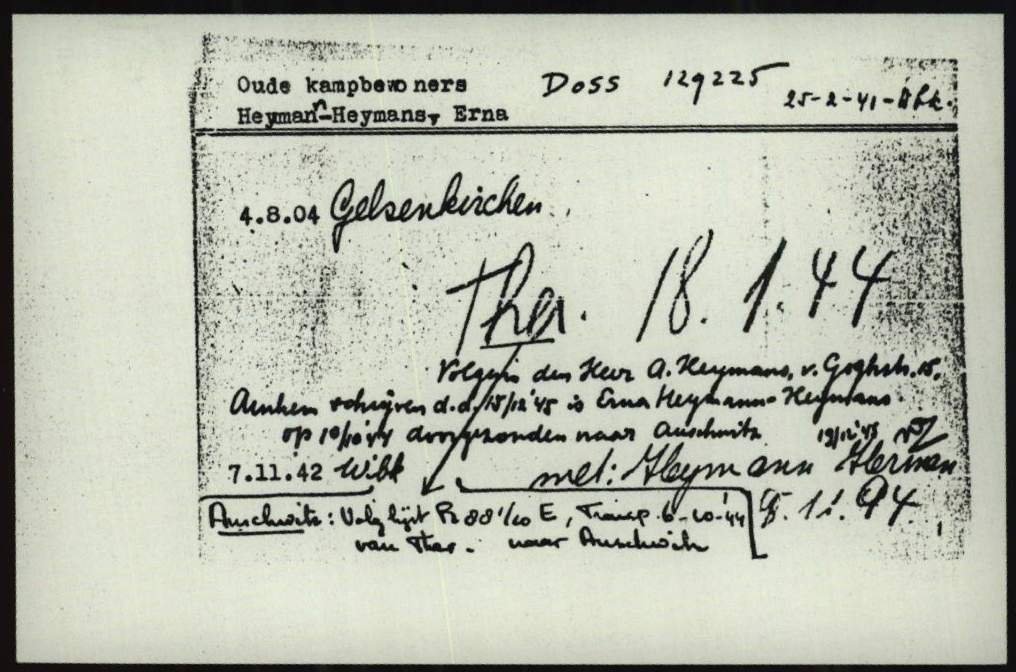 Oude kampbewoners Doss 129225
25-2-41-
Heymann-Heymans, Erna
4.8.04 Gelsenkirchen
Ther. 18.1.44
Volgens den Heer A. Heymans, v. Goghstr. 15,
Arnhem schrijven d.d. 15/12 '45 is Erna Heymann-Heymans
op 10/10 '44 doorgezonden naar Auschwitz 19/12 '45
7.11.42 Wibk met: Heymann Herman
Auschwitz: Volg lijst Pz 88 1/10 E, Transp. 6-10-'44
van Ther. naar Auschwitz
1